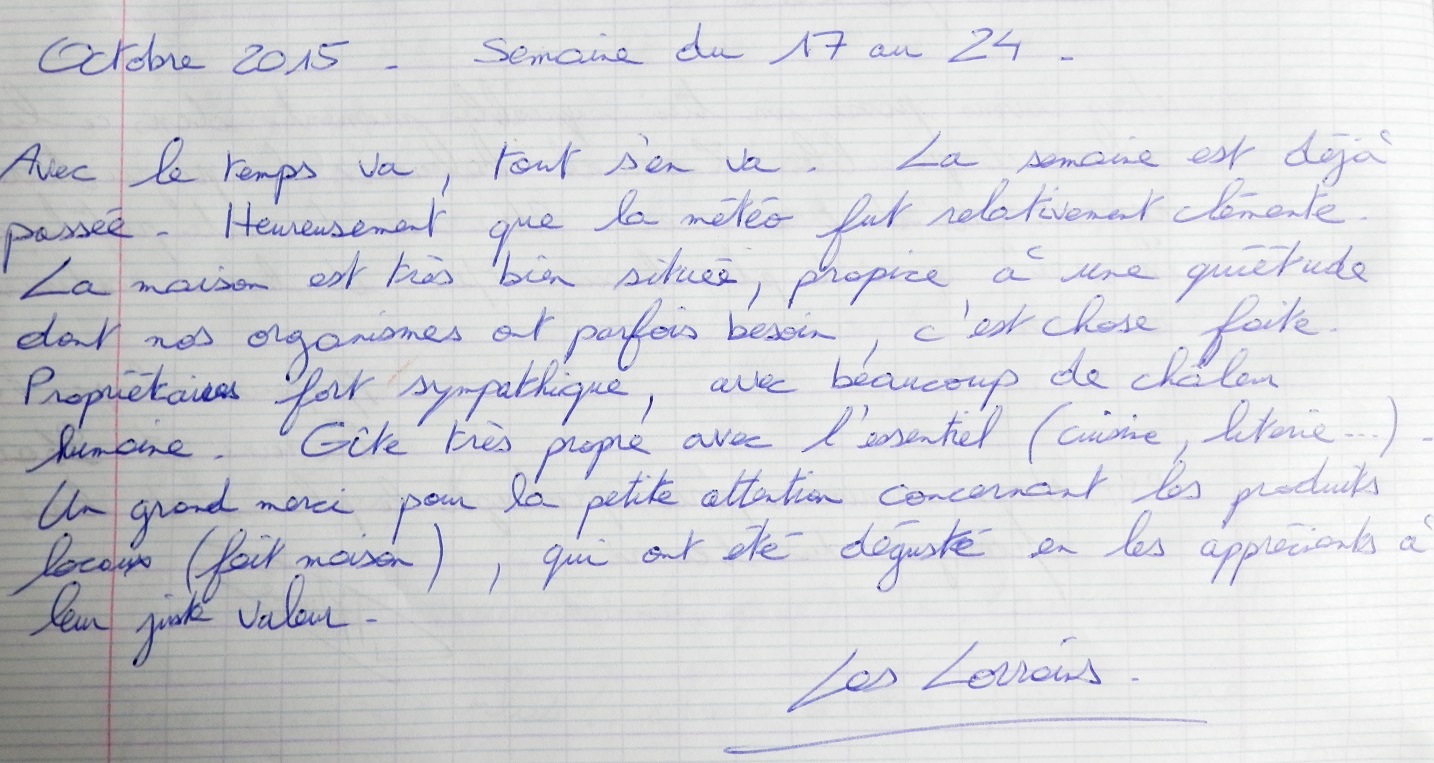 Octobre 2015 - Semaine du 17 au 24 -
Avec le temps va, tout s'en va. La semaine est déjà
passée - Heureusement que la météo fut relativement clémente.
La maison est très bien située, propice à une quiétude
dont nos organismes ont parfois besoin, c'est chose faite.
Propriétaires fort sympathique, avec beaucoup de chaleur
humaine. Gîte très propre avec l'essentiel (cuisine, literie...) -
Un grand merci pour la petite attention concernant les produits
locaux (fait maison), qui ont été dégusté en les appréciants à
leur juste valeur -
Les Lorrains -